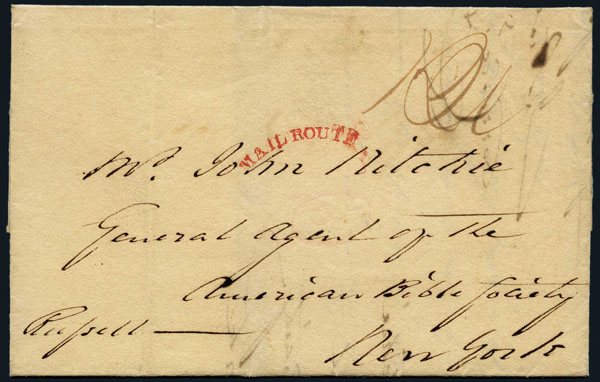 MAIL ROUTE
Mr. John Ritchie
General Agent of the
American Bible Society
Russell —
New York